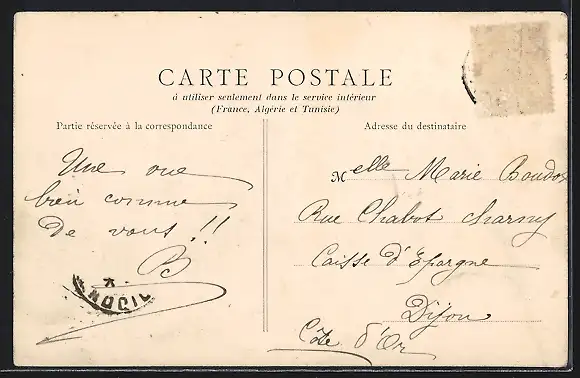 CARTE POSTALE
à utiliser seulement dans le service intérieur
(France, Algérie et Tunisie)
Partie réservée à la correspondance
Une vue
bien connue
de vous !!
B
Adresse du destinataire
Melle Marie Boudo
Rue Chabot charny
Caisse d'Epargne
Dijon
Côte d'Or